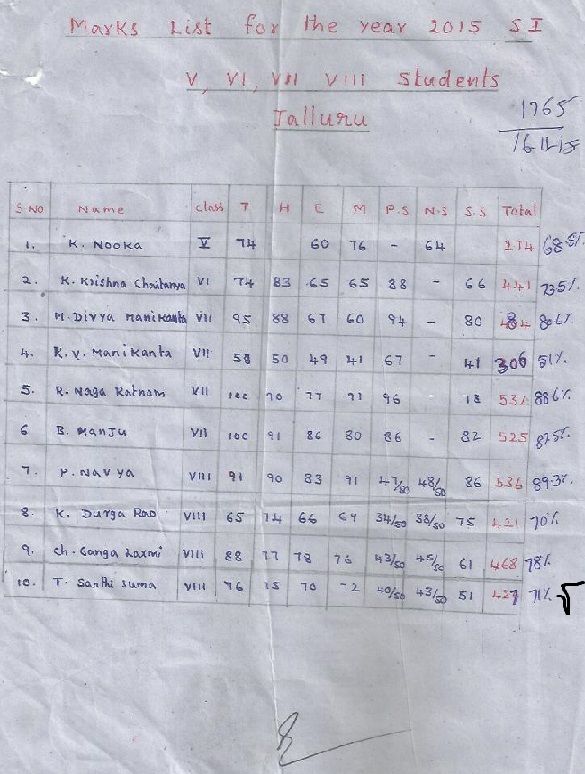 Marks List for the year 2015 SI
V, VI, VII VIII Students
Jalluru
1765
S.NO Name class T H E M P.S N.S S.S Total
1. K. Nooka V 74 60 76 - 64 274 68.5%
2. K. Krishna Chaitanya VI 74 83 65 65 88 - 66 441 73.5%
3. M. Divya Manikanta VII 95 88 67 60 94 - 80 484 80%
4. K.V. Manikanta VII 58 50 49 41 67 - 41 306 51%
5. K. Naga Ratnam VII 90 77 91 96 531 88.6%
6 B. Manju VII 100 91 86 80 86 - 82 525 87.5%
7. P. Navya VIII 91 90 83 91 47/50 48/50 86 536 89.3%
8. K. Durga Rao VIII 65 74 66 69 34/50 38/50 75 421 70%
9. Ch. Ganga Laxmi VIII 88 77 78 76 43/50 45/50 61 468 78%
10. T. Santhi Suma VIII 76 75 70 72 40/50 43/50 51 427 71%